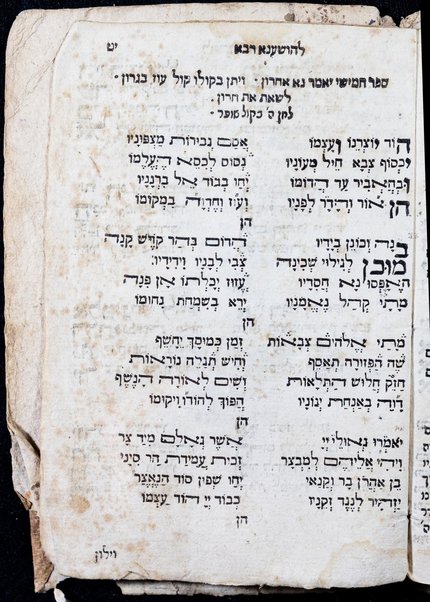 להושענא רבא יט
ספר חמישי יאמר נא אחרון · ויתן בקולו קול עוז בגרון ·
לשאת את חרון ·
לחן ס' בקול שופר ·
הוד יוצרנו ועצמו אסם גבורות מצפוניו
יכסוף צבא חיל מעוניו נסוס לכסא העלמו
ובהאביר עד הדומו יחו בגוד אל ברנניו
הן אור והדר לפניו ועוז וחדוה במקומו
הן
בנה וכונן בידיו הדום בהר קדש קנה
מוכן לגילוי שכינה צבי לבניו וידידיו
האפסו נא חסדיו עזוז יכלתו אן פנה
מתי קהל נאמניו ירא בשמחת נחומו
הן
מתי אלהים צבאות זמן כמיסך יחשף
שה הפזורה תאסף וחיש תגלה נוראות
חזק חלוש התלאות ושים לאורה הנשף
דוה באנחת יגוניו הפוך להודו ויקומו
הן
יאמרו גאולי יי אשר גאלם מיד צר
ויהי אליהם למבצר זכות עמידת הר סיני
בן אהרן בר וקנאי יחו שפין סוד הנאצר
יזהיר לנגד זקניו כבוד יי הוד עצמו
הן
וילון